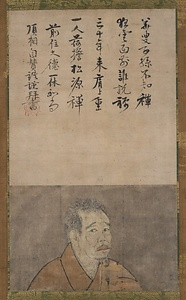 華叟子孫不知禪
狂雲面前誰説禪
三十年来肩上重
一人荷擔松源禪
前住大德一休和尚
頂相自賛拝書